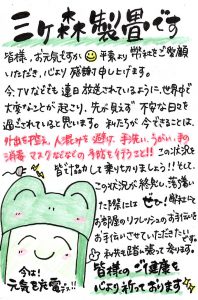 三ヶ森製畳です
皆様、お元気ですか 平素より弊社をご愛顧
いただき、心より感謝申し上げます。
今、TVなどでも連日放送されているように、世界が
大変なことが起こり、先が見えず不安な日々を
過ごされていると思います。私たちができることは、
外出を控え、人混みを避け、手洗い、うがい、手の
消毒、マスクなどなどの予防を行うこと!! この状況を
皆で協力して乗りきりましょう!! そして、
この状況が終息し、落着い
た際には ぜひ!弊社にて
お部屋のリフレッシュのお手伝いを
お手伝いさせていただきたい
です。
私共も踏ん張って参ります。
皆様のご健康を
心より祈っております
今は!
元気を充電っ!!